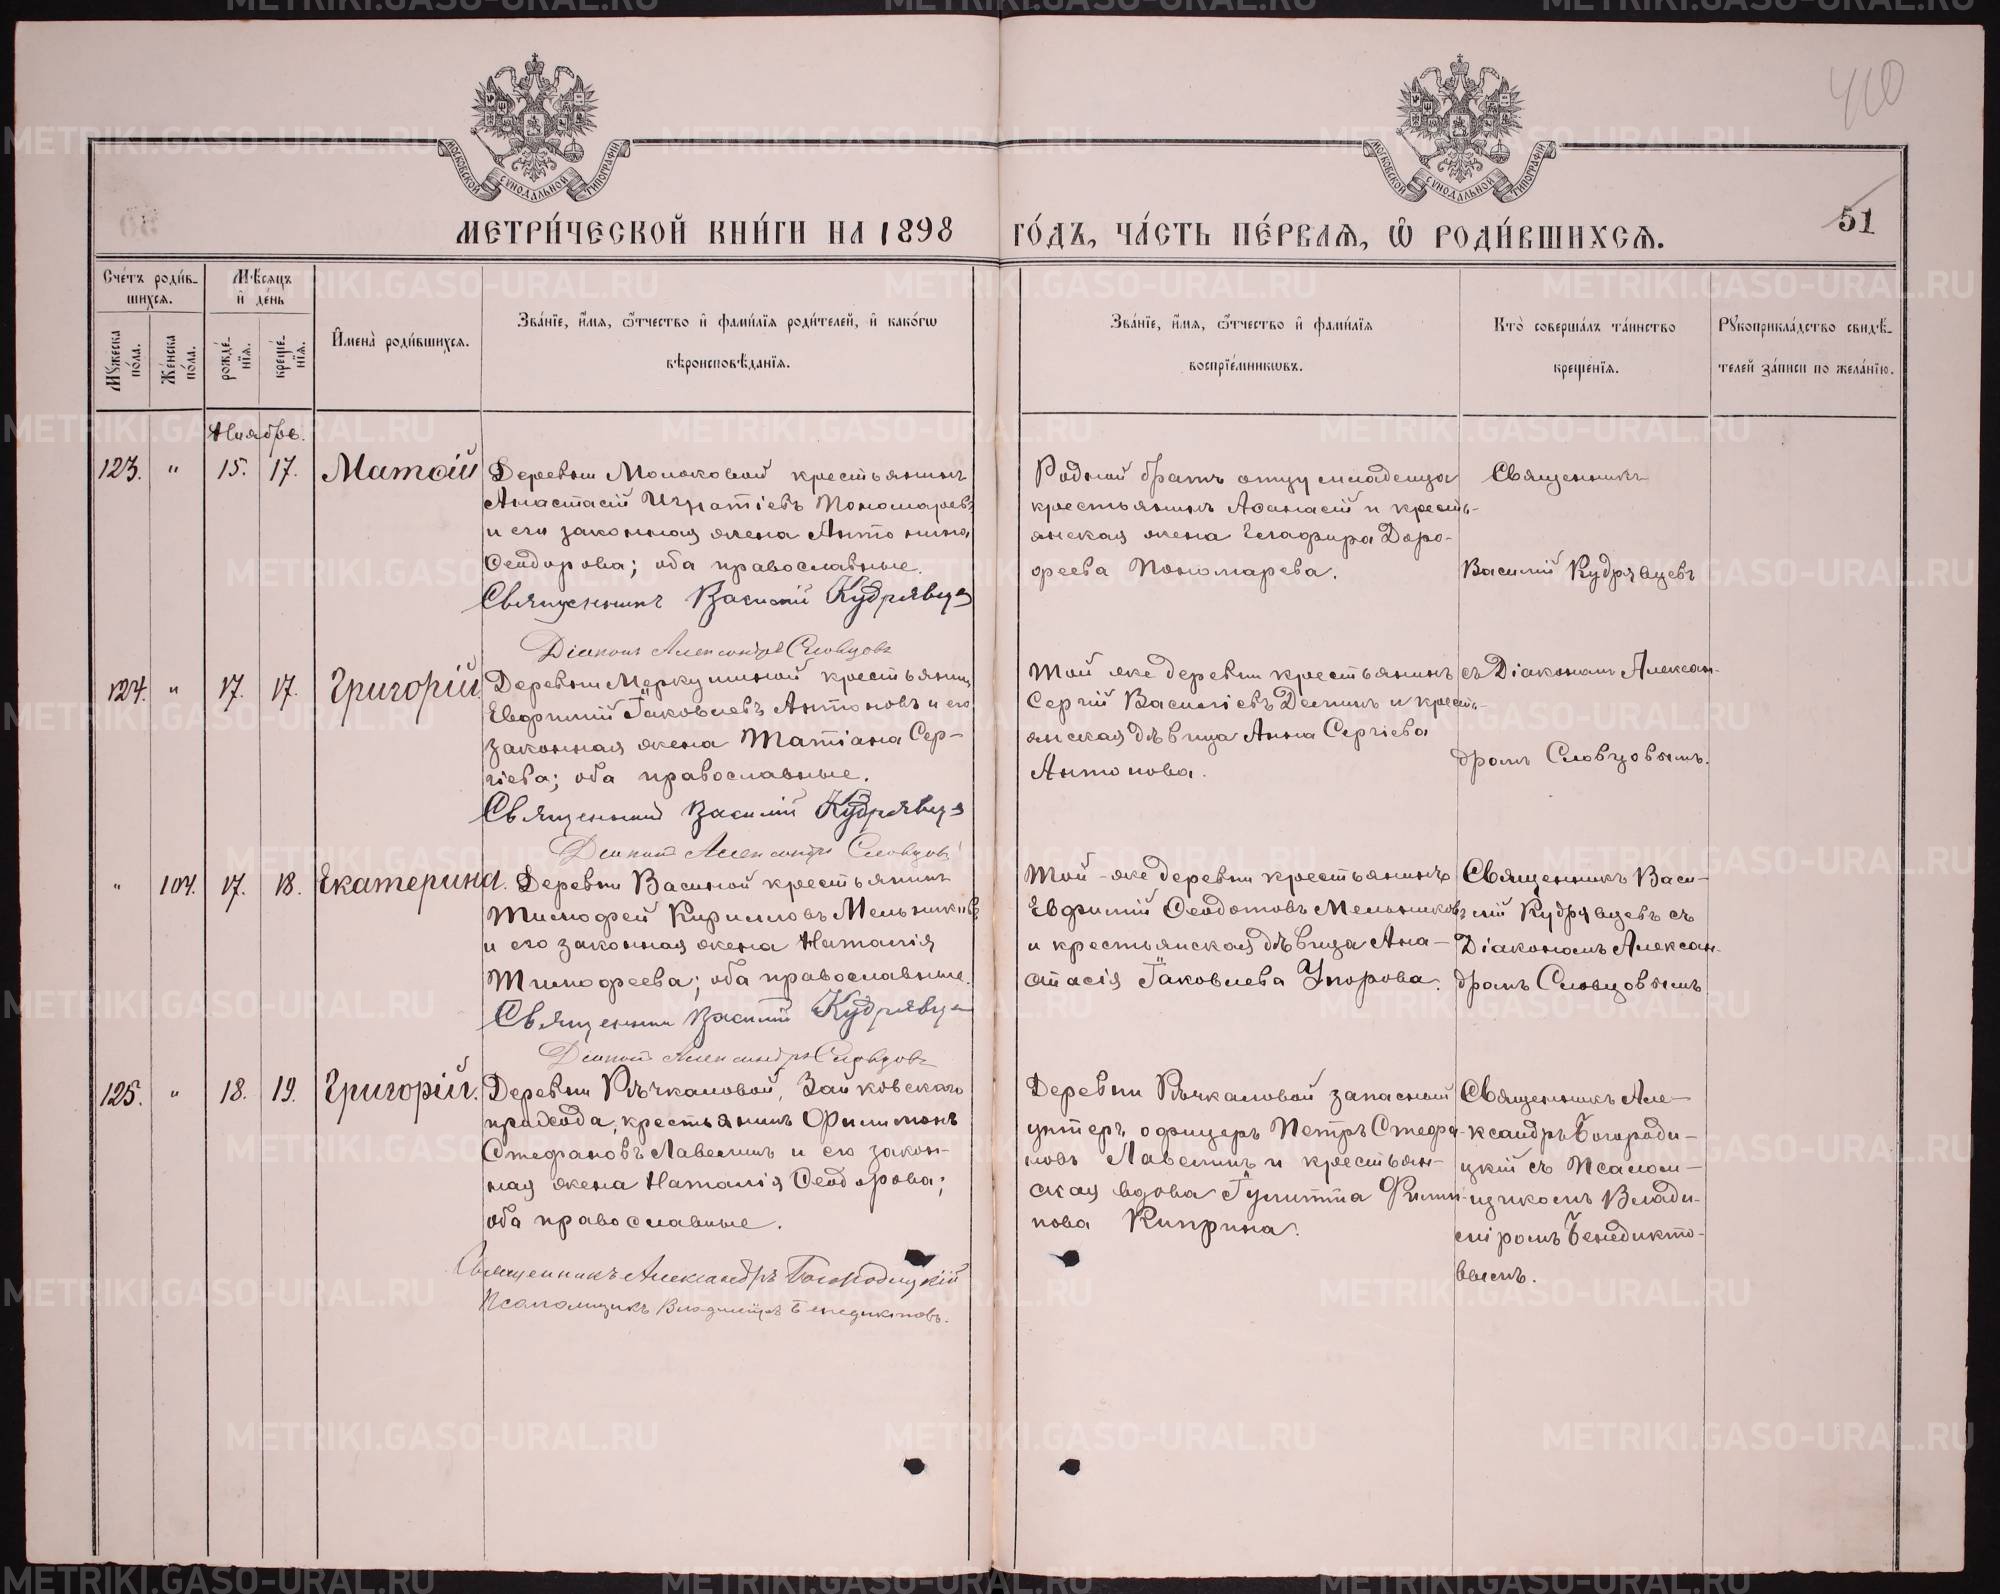 410
51
МОСКОВСКОЙ СУНОДАЛЬНОЙ ТИПОГРАФІИ
МОСКОВСКОЙ СУНОДАЛЬНОЙ ТИПОГРАФІИ
МЕТРИ́ЧЕСКОЙ КНИ́ГИ НА 1898 ГО́ДЪ, ЧА́СТЬ ПЕ́РВАЯ, Ѡ РОДИ́ВШИХСЯ.
Сче́тъ роди́в-
шихся.
Му́жеска по́ла.
Же́нска по́ла.
Мѣсяцъ
и де́нь
рожде́-
нія.
креще́-
нія.
Имена̀ роди́вшихся.
Зва́ніе, и́мя, ѻ́тчество и фами́лія роди́телей, и како́гѡ
вѣроисповѣ́данія.
Зва́ніе, и́мя, ѻ́тчество и фами́лія
воспріе́мникѡвъ.
Кто̀ соверша́лъ та́инство
креще́нія.
Рукоприкла́дство свидѣ́-
телей за́писи по жела́нію.
Ноябрь.
123. " 15. 17. Матѳій
Деревни Молоковой крестьянинъ
Анастасій Игнатіевъ Пономаревъ
и его законная жена Антонина
Ѳеодорова; оба православные.
Священникъ Василій Кудрявцевъ
Діаконъ Александръ Словцовъ
Родной братъ отцу младенца
крестьянинъ Аѳанасій и кресть-
янская жена Глафира Доро-
феева Пономарева.
Священникъ
Василій Кудрявцевъ
124. " 17. 17. Григорій.
Деревни Меркушиной крестьянинъ
Евфимій Іаковлевъ Антоновъ и его
законная жена Татіана Сер-
гіева; оба православные.
Священникъ Василій Кудрявцевъ
Діаконъ Александръ Словцовъ
Той же деревни крестьянинъ
Сергій Василіевъ и кресть-
янская дѣвица Анна Сергіева
Антонова.
съ Діакономъ Алексан-
дромъ Словцовымъ.
" 104. 17. 18. Екатерина.
Деревни Васиной крестьянинъ
Тимофей Кирилловъ Мельниковъ
и его законная жена Наталія
Тимофеева; оба православные.
Священникъ Василій Кудрявцевъ
Діаконъ Александръ Словцовъ
Той-же деревни крестьянинъ
Евфимій Ѳеодотовъ Мельниковъ
и крестьянская дѣвица Ана-
стасія Іаковлева Упорова.
Священникъ Васи-
лій Кудрявцевъ съ
Діакономъ Алексан-
дромъ Словцовымъ
125. " 18. 19. Григорій.
Деревни Рѣчкаловой, Зайковскаго
прихода, крестьянинъ Филимонъ
Стефановъ Лавелинъ и его закон-
ная жена Наталія Ѳеодорова;
оба православные.
Священникъ Александръ Богородицкій
Псаломщикъ Владиміръ Бенедиктовъ.
Деревни Рѣчкаловой запасный
унтеръ офицеръ Петръ Стефа-
новъ Лавелинъ и крестьян-
ская вдова Іулитта Филип-
пова Киприна.
Священникъ Але-
ксандръ Богороди-
цкій съ Псалом-
щикомъ Влади-
міромъ Бенедикто-
вымъ.
METRIKI.GASO-URAL.RU